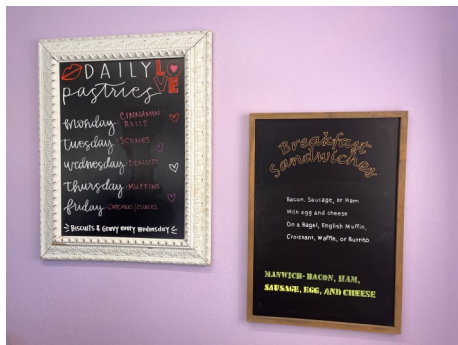 DAILY
pastries
LOVE
monday: CINNAMON
ROLLS
tuesday: SCONES
wednesday: DONUTS
thursday: MUFFINS
friday: CUPCAKES/COOKIES
Biscuits & Gravy every Wednesday
Breakfast
Sandwiches
Bacon, Sausage, or Ham
With egg and cheese
On a Bagel, English Muffin,
Croissant, Waffle, or Burrito
MANWICH- BACON, HAM,
SAUSAGE, EGG, AND CHEESE